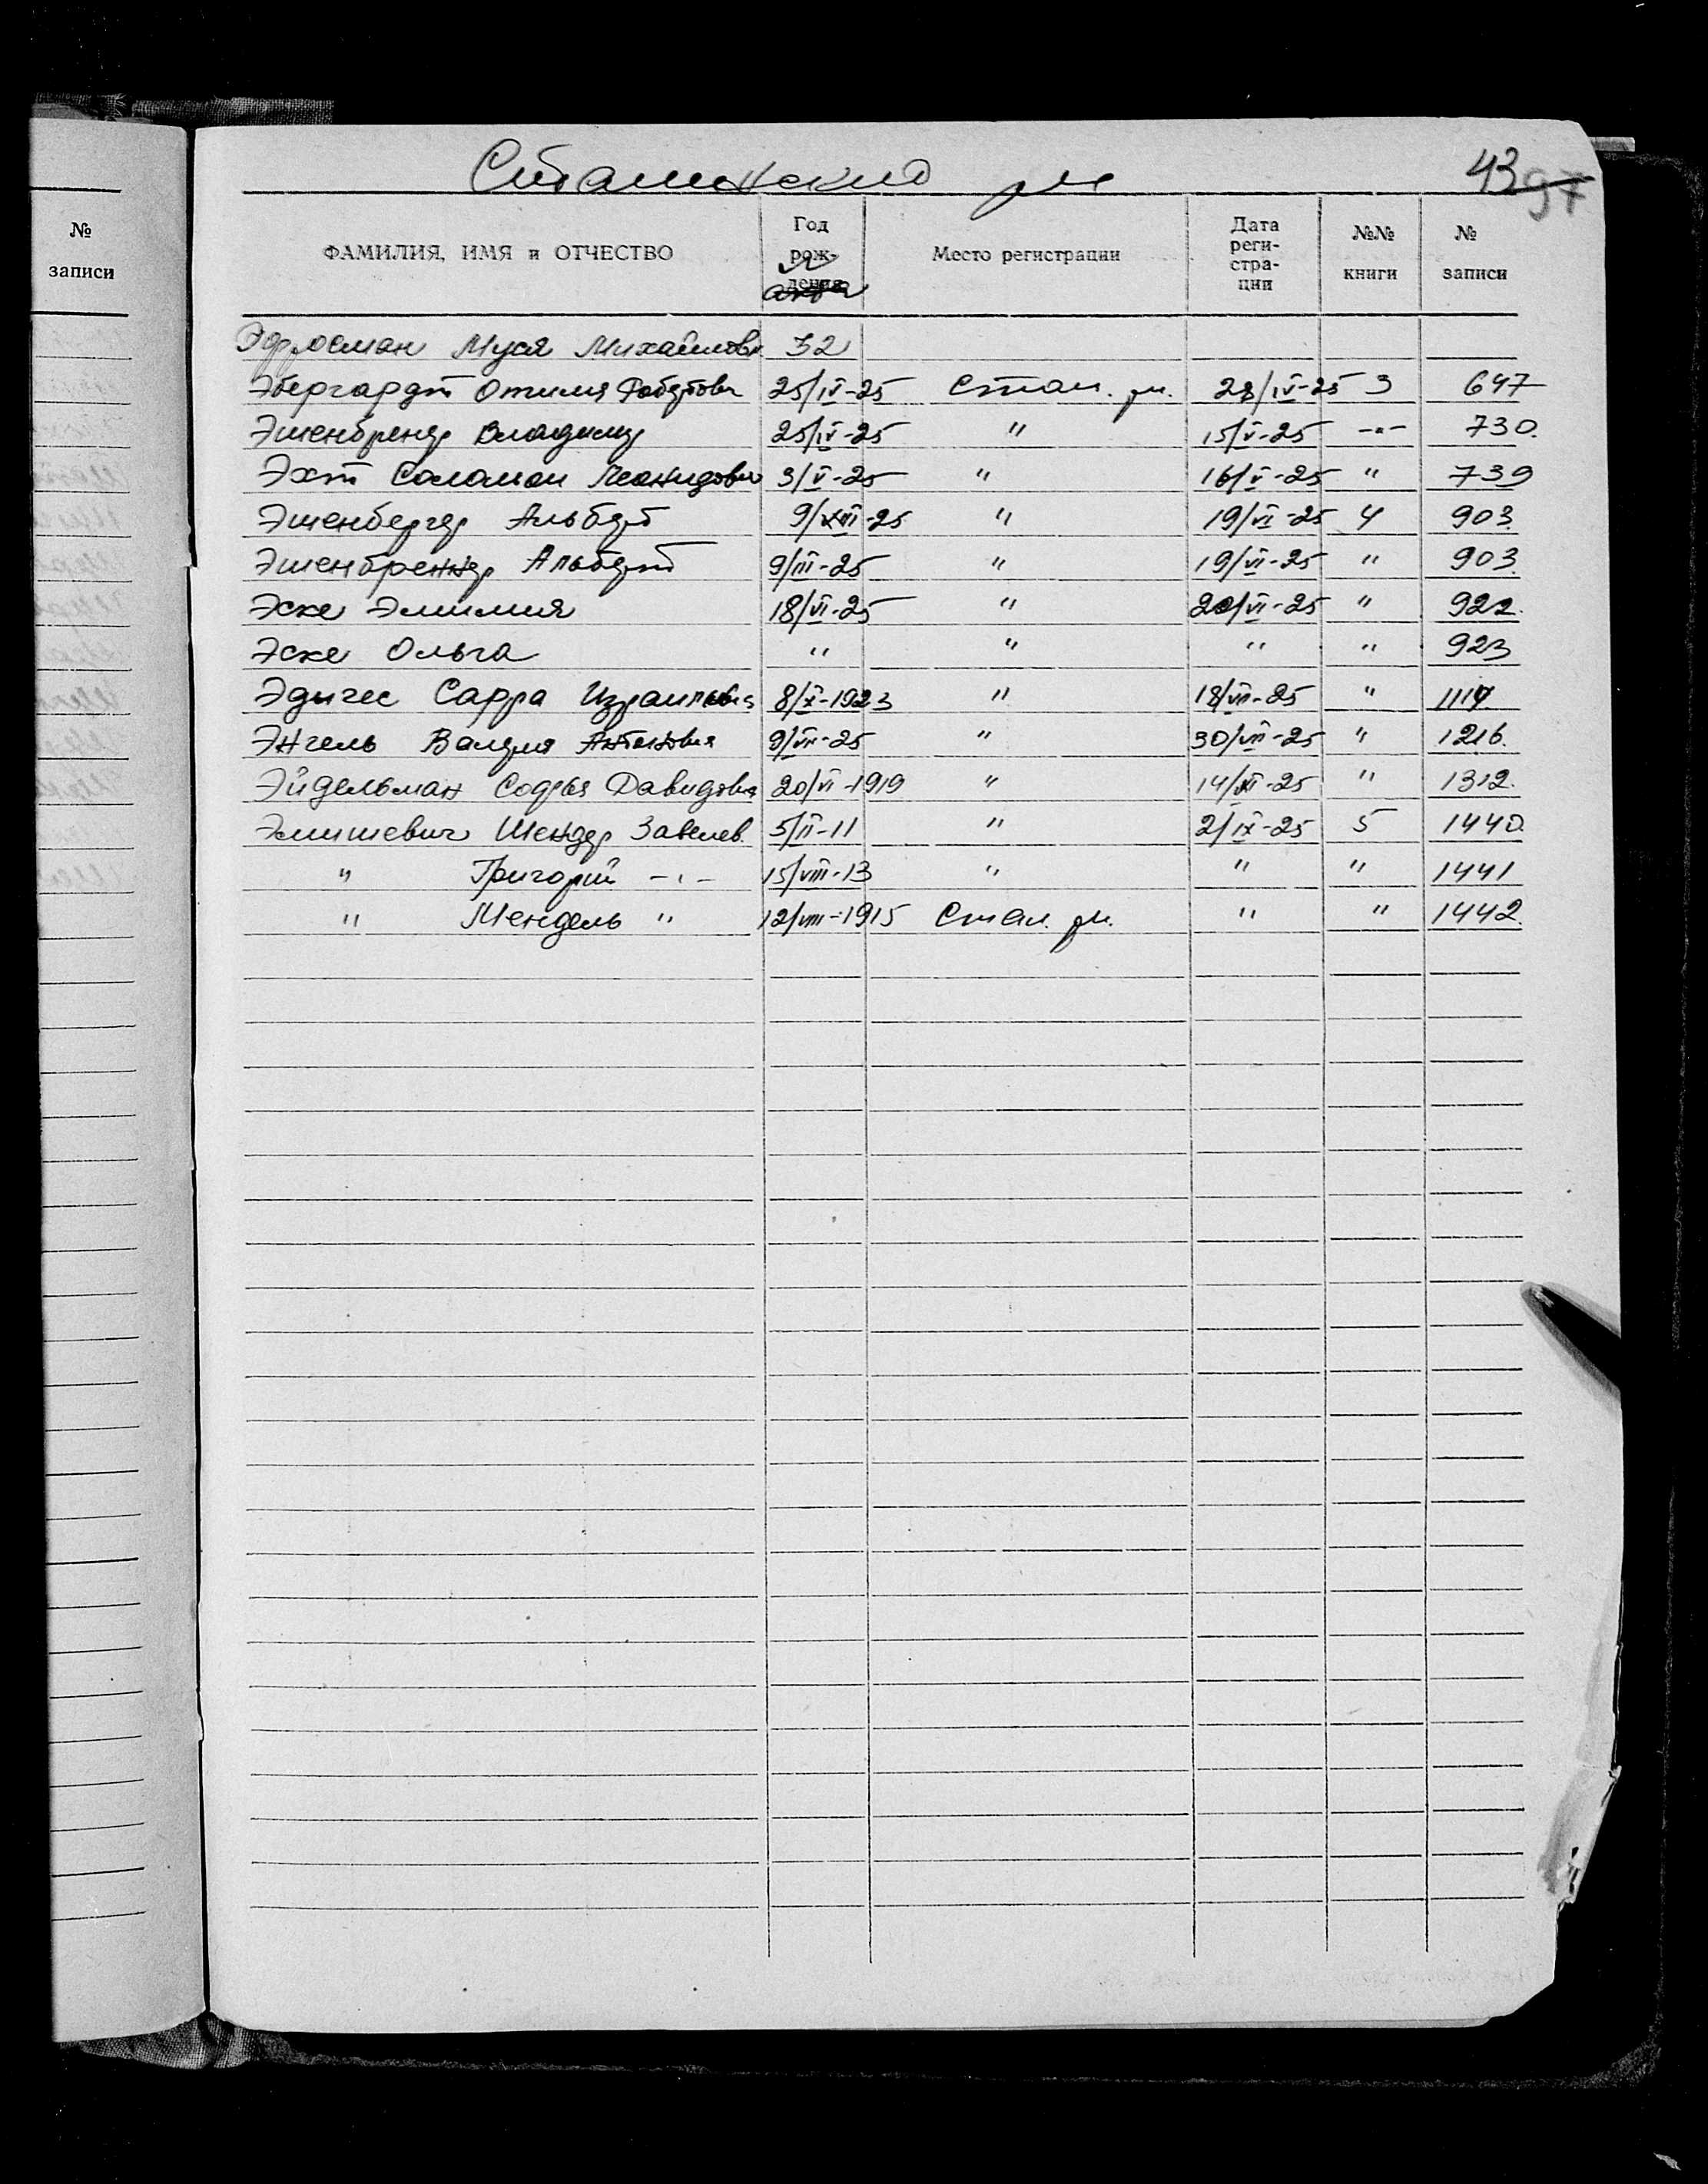 Сталинский р-н
43 97
№ записи
ФАМИЛИЯ, ИМЯ и ОТЧЕСТВО Год рождения Место регистрации Дата регистрации №№ книги № записи
Муся Михайловн 32
Эбергардт Отилия Робертовн 25/IV-25 Стал. р-н. 28/IV-25 3 647
Эшенбренер Владимир 25/IV-25 " 15/V-25 -"- 730.
Эхт Соломон Леонидович 3/V-25 " 16/V-25 " 739
Эшенбергер Альберт 9/III-25 " 19/VI-25 4 903.
Эшенбреннер Альберт 9/III-25 " 19/VI-25 " 903.
Эске Эмилия 18/VI-25 " 20/VI-25 " 922.
Эске Ольга " " " " 923
Эдичес Сарра Израилевна 8/X-1923 " 18/VII-25 " 1117.
Энгель Валерия Антоновна 9/VII-25 " 30/VII-25 " 1216.
Эйдельман Софья Давидовна 20/VI-1919 " 14/ -25 " 1312.
Элишевич Шендер Завелев. 5/II-11 " 2/IX-25 5 1440.
" Григорий -"- 15/VIII-13 " " " 1441
" Мендель " 12/VIII-1915 Стал. р-н. " " 1442.